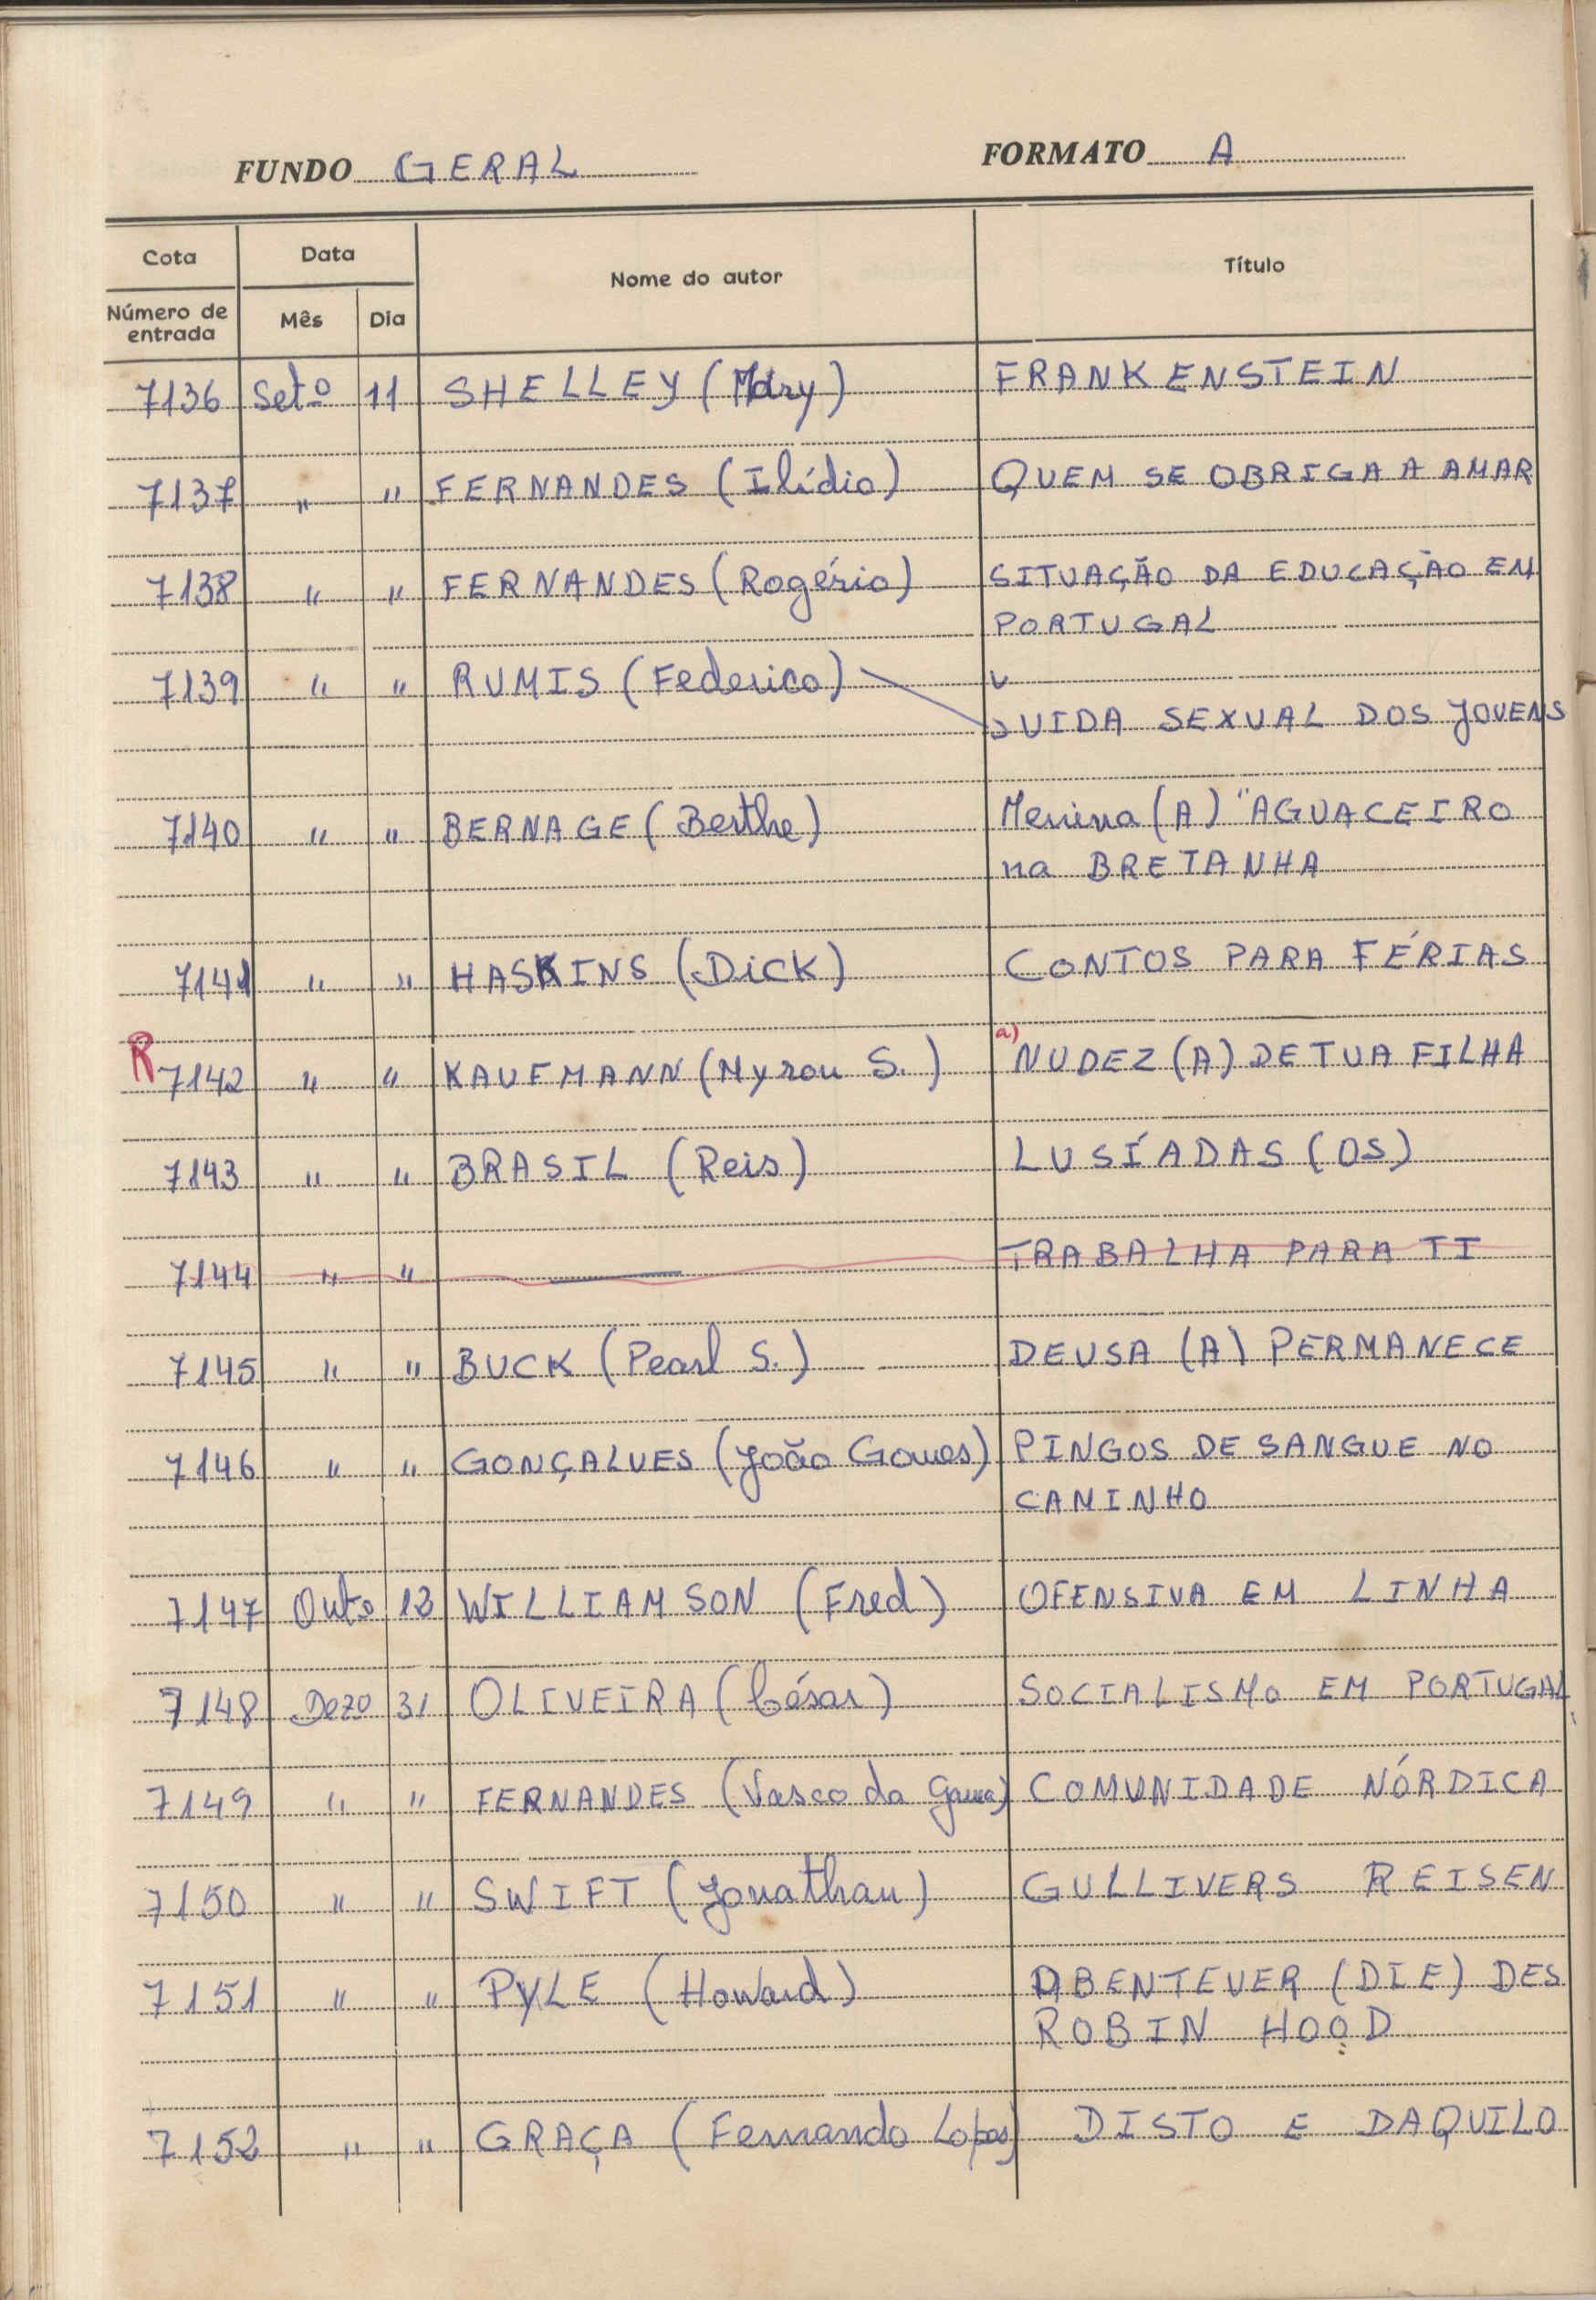 FUNDO GERAL FORMATO A
Cota Data Nome do autor Título
Número de entrada Mês Dia
7136 Setº 11 SHELLEY (Mary) FRANKENSTEIN
7137 " " FERNANDES (Ilídio) QUEM SE OBRIGA A AMAR
7138 " " FERNANDES (Rogério) SITUAÇÃO DA EDUCAÇÃO EM
PORTUGAL
7139 " " RUMIS (Federico)
VIDA SEXUAL DOS JOVENS
7140 " " BERNAGE (Berthe) Menina (A) "AGUACEIRO
na BRETANHA
7141 " " HASKINS (Dick) CONTOS PARA FÉRIAS
R 7142 " " KAUFMANN (Myron S.) a) NUDEZ (A) DE TUA FILHA
7143 " " BRASIL (Reis) LUSÍADAS (OS)
7144 " " — TRABALHA PARA TI
7145 " " BUCK (Pearl S.) DEUSA (A) PERMANECE
7146 " " GONÇALVES (João Gomes) PINGOS DE SANGUE NO
CAMINHO
7147 Outo 13 WILLIAMSON (Fred) OFENSIVA EM LINHA
7148 Dezo 31 OLIVEIRA (César) SOCIALISMO EM PORTUGAL
7149 " " FERNANDES (Vasco da Gama) COMUNIDADE NÓRDICA
7150 " " SWIFT (Jonathan) GULLIVERS REISEN
7151 " " PYLE (Howard) ABENTEUER (DIE) DES
ROBIN HOOD
7152 " " GRAÇA (Fernando Lopes) DISTO E DAQUILO